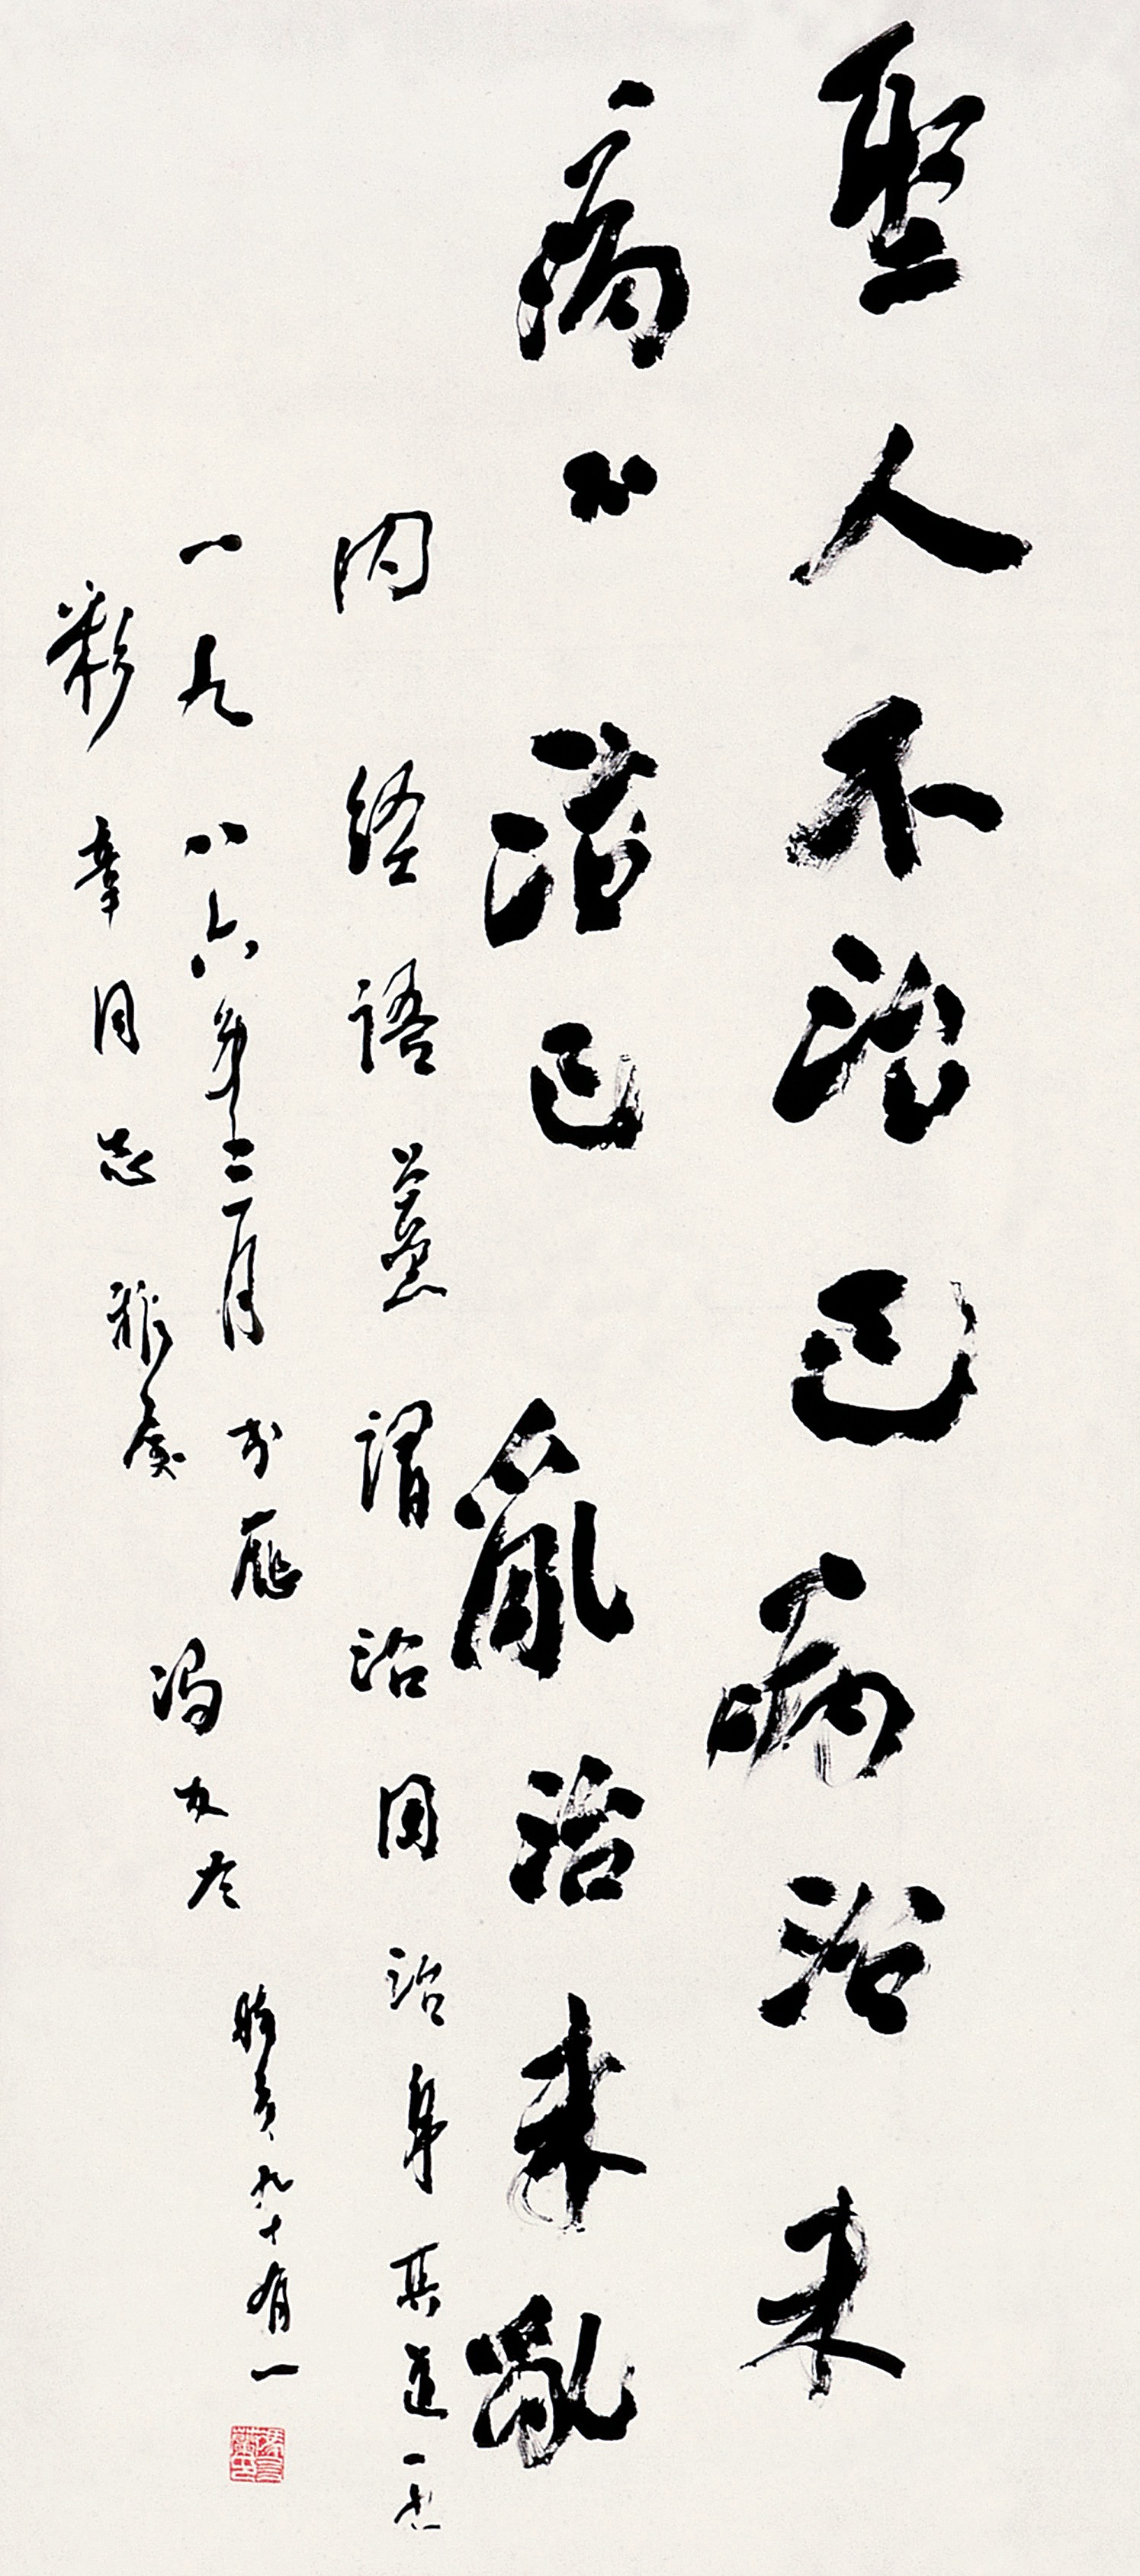 聖人不治已病治未
病不治已亂治未亂
内经語蓋謂治国治身其道一也
一九八六年三月书應
彩章同志雅属 冯友兰 時年九十有一